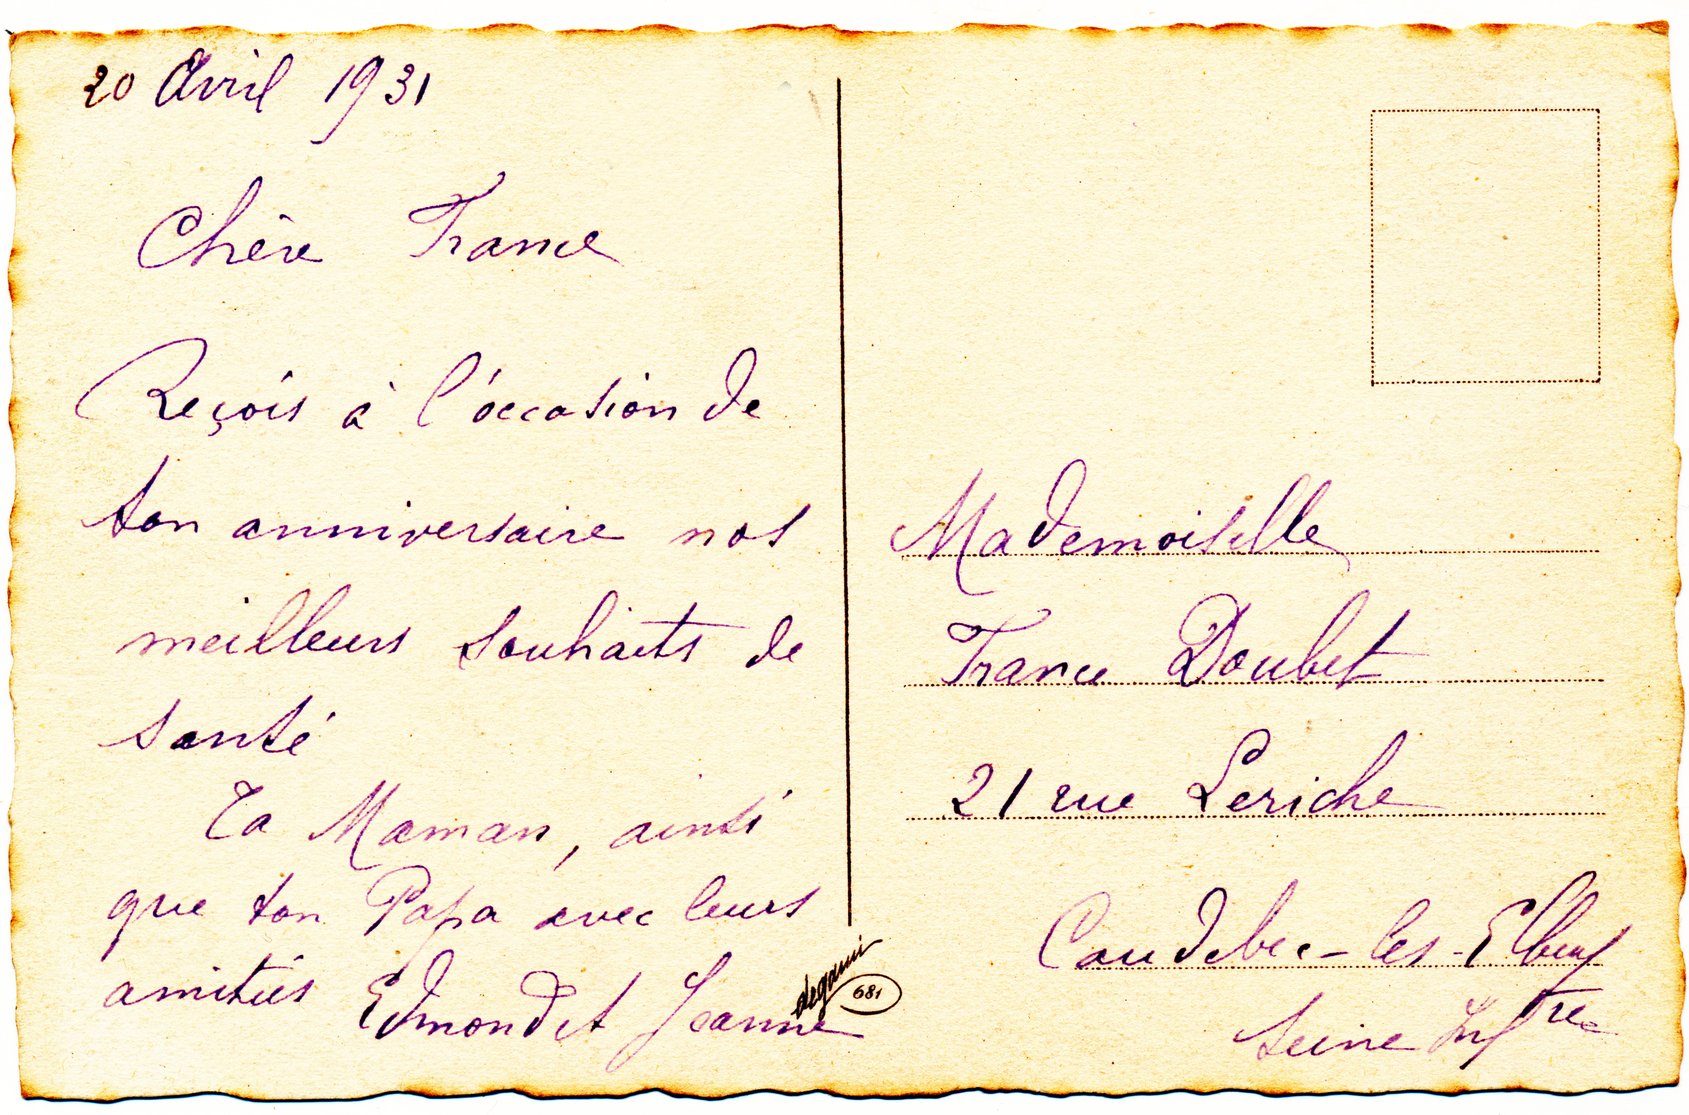 20 Avril 1931
Chère France
Reçois à l'occasion de
ton anniversaire nos
meilleurs souhaits de
santé
Ta Maman, ainsi
que ton Papa avec leurs
amitiés Edmond et Jeanne
degami
681
Mademoiselle
France Doubet
21 rue Leriche
Caudebec-les-Elbeuf
Seine Infre